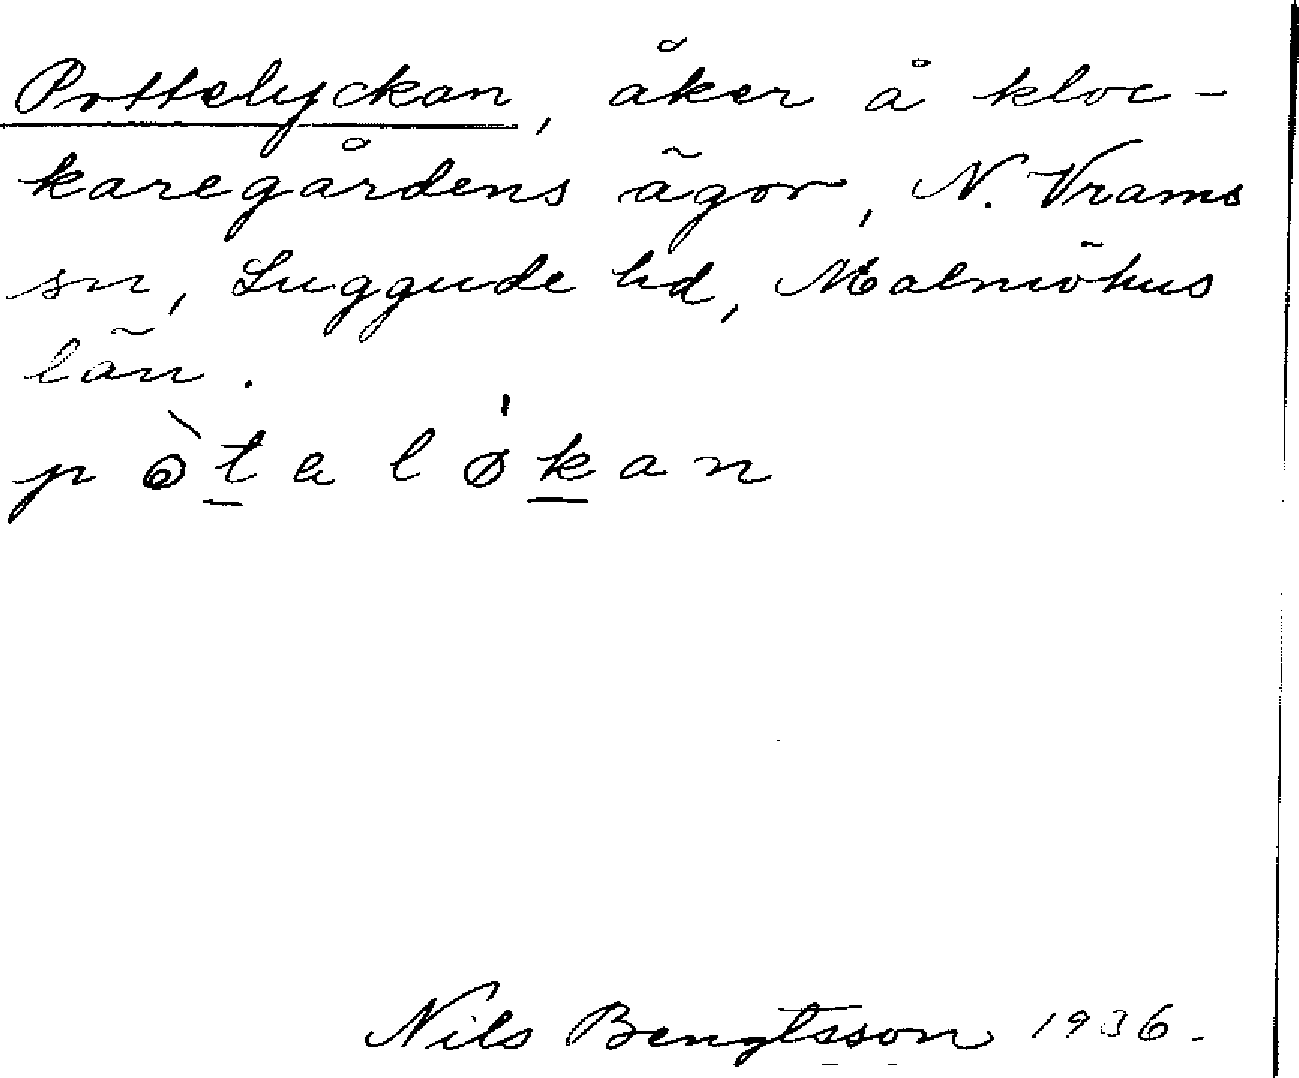 Pottelyckan, åker å kloc-
karegårdens ägor, N. Vrams
sn, Luggude hd, Malmöhus
län.
p ò t a l ø k a n
Nils Bengtsson 1936.